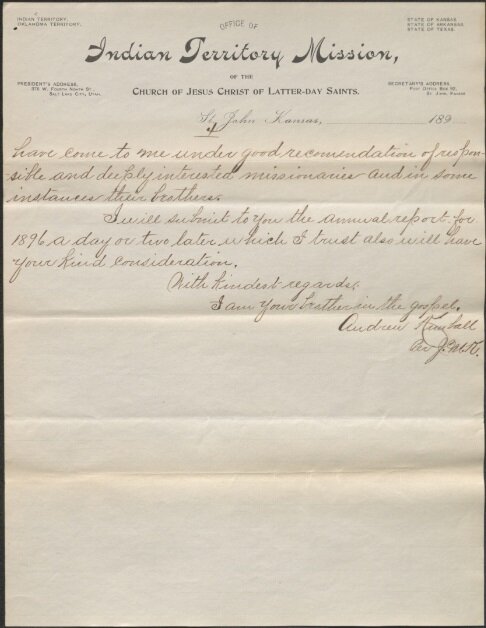 INDIAN TERRITORY.
OKLAHOMA TERRITORY.
OFFICE OF
STATE OF KANSAS.
STATE OF ARKANSAS.
STATE OF TEXAS.
Indian Territory Mission,
OF THE
CHURCH OF JESUS CHRIST OF LATTER-DAY SAINTS.
PRESIDENT'S ADDRESS,
375 W. FOURTH NORTH ST.,
SALT LAKE CITY, UTAH.
SECRETARY'S ADDRESS,
POST OFFICE BOX 92,
ST. JOHN, KANSAS
St. John Kansas, 189
4
have come to me under good recomendation of respon-
sible and deeply interested missionaries and in some
instances their brothers.
I will submit to you the annual report for
1896 a day or two later which I trust also will have
your kind consideration.
With kindest regards,
I am Your brother in the gospel.
Andrew Kimball
Per J. M. K.